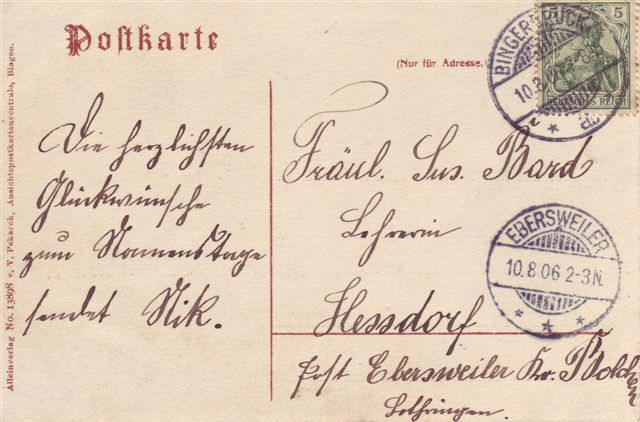 Postkarte
(Nur für Adresse.
BINGERBRÜCK
10.8.
5 5
DEUTSCHES REICH
Die herzlichsten
Glückwünsche
zum Namenstage
sendet Nik.
Fräul. Sus. Bard
Lehrerin
Hessdorf
Post Ebersweiler Kr. Bolchen
Lothringen.
EBERSWEILER
10.8.06 2-3N.
Alleinverlag No. 13898 v. V. Pekarek, Ansichtspostkartencentrale, Bingen.